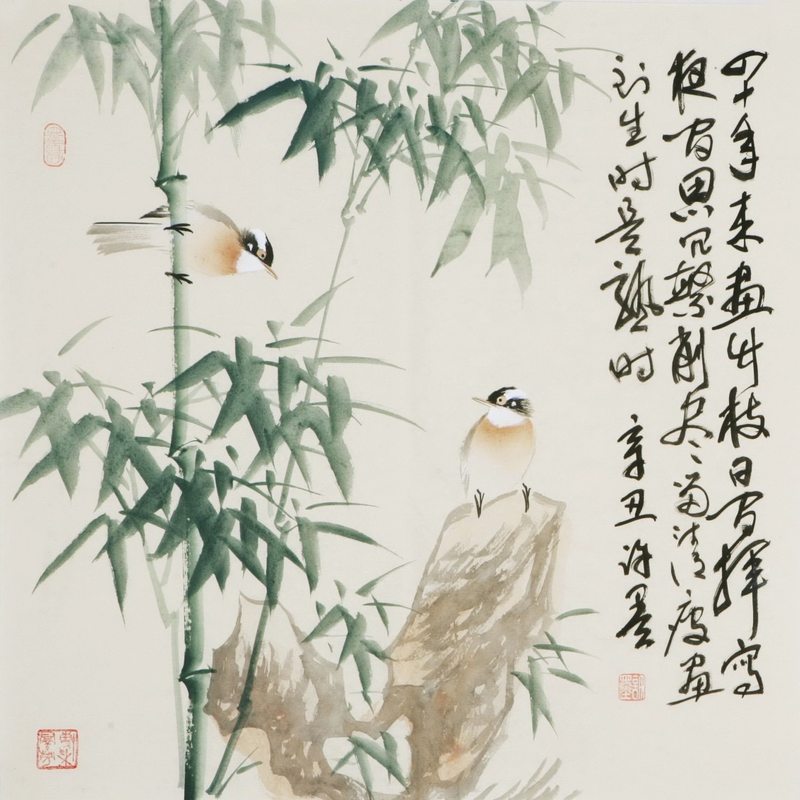 四十年来畫竹枝日间挥寫
夜间思冗繁削尽留清瘦畫
到生时是熟时 辛丑 许墨